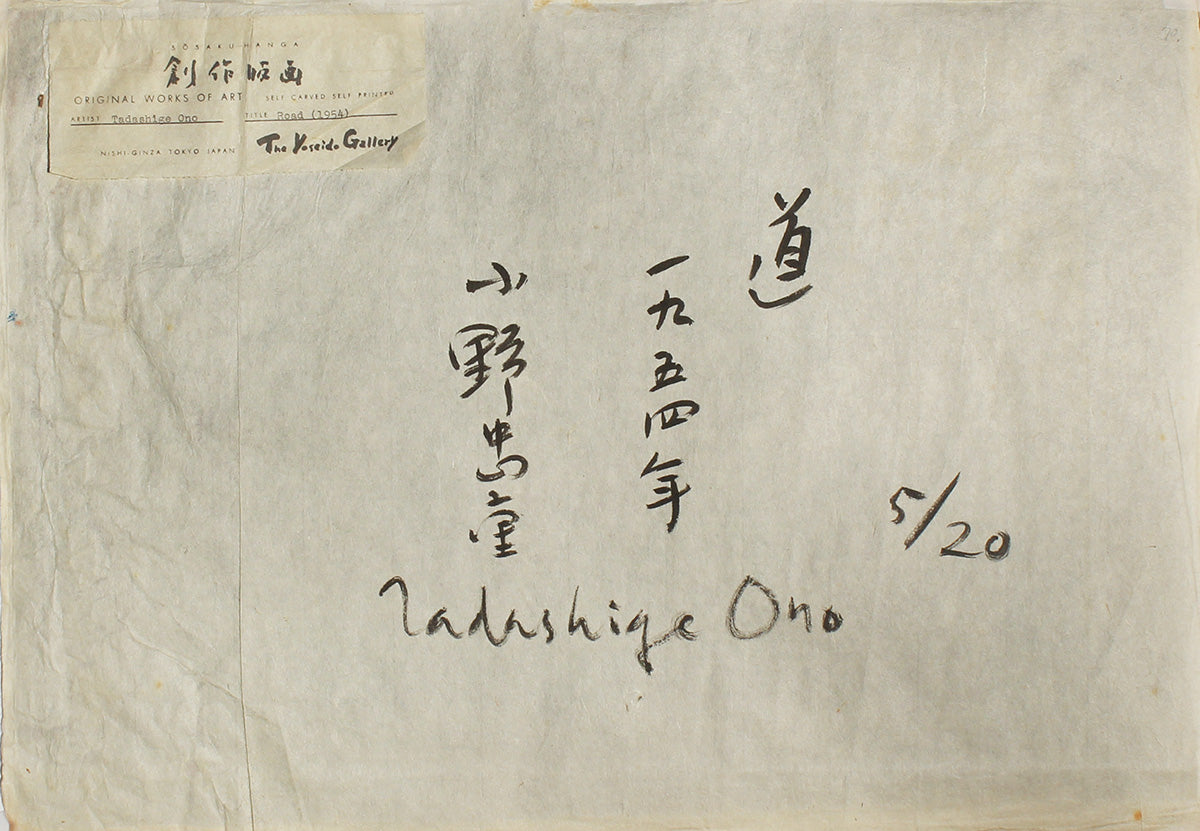 SŌSAKU-HANGA
創作版画
ORIGINAL WORKS OF ART SELF CARVED SELF PRINTED
ARTIST Tadashige Ono TITLE Road (1954)
NISHI-GINZA TOKYO JAPAN The Yoseido Gallery
道
一九五四年
小野忠重
5/20
Tadashige Ono